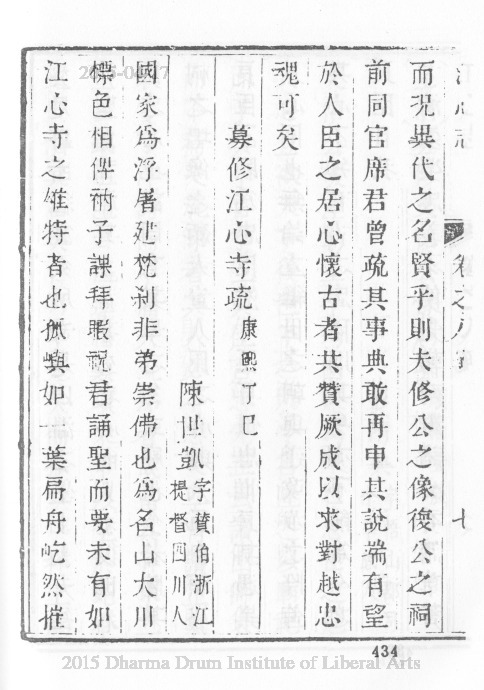 江心志 卷之八 七
而況異代之名賢乎則夫修公之像復公之祠
前同官席君曾疏其事典敢再申其說端有望
於人臣之居心懷古者共贊厥成以求對越忠
魂可矣
募修江心寺疏 康熙丁巳
陳世凱 字贊伯浙江提督四川人
國家為浮屠建梵刹非第崇佛也為名山大川
標色相俾衲子課拜暇祝君誦聖而要未有如
江心寺之雄特者也孤嶼如一葉扁舟屹然摧
434
2015 Dharma Drum Institute of Liberal Arts